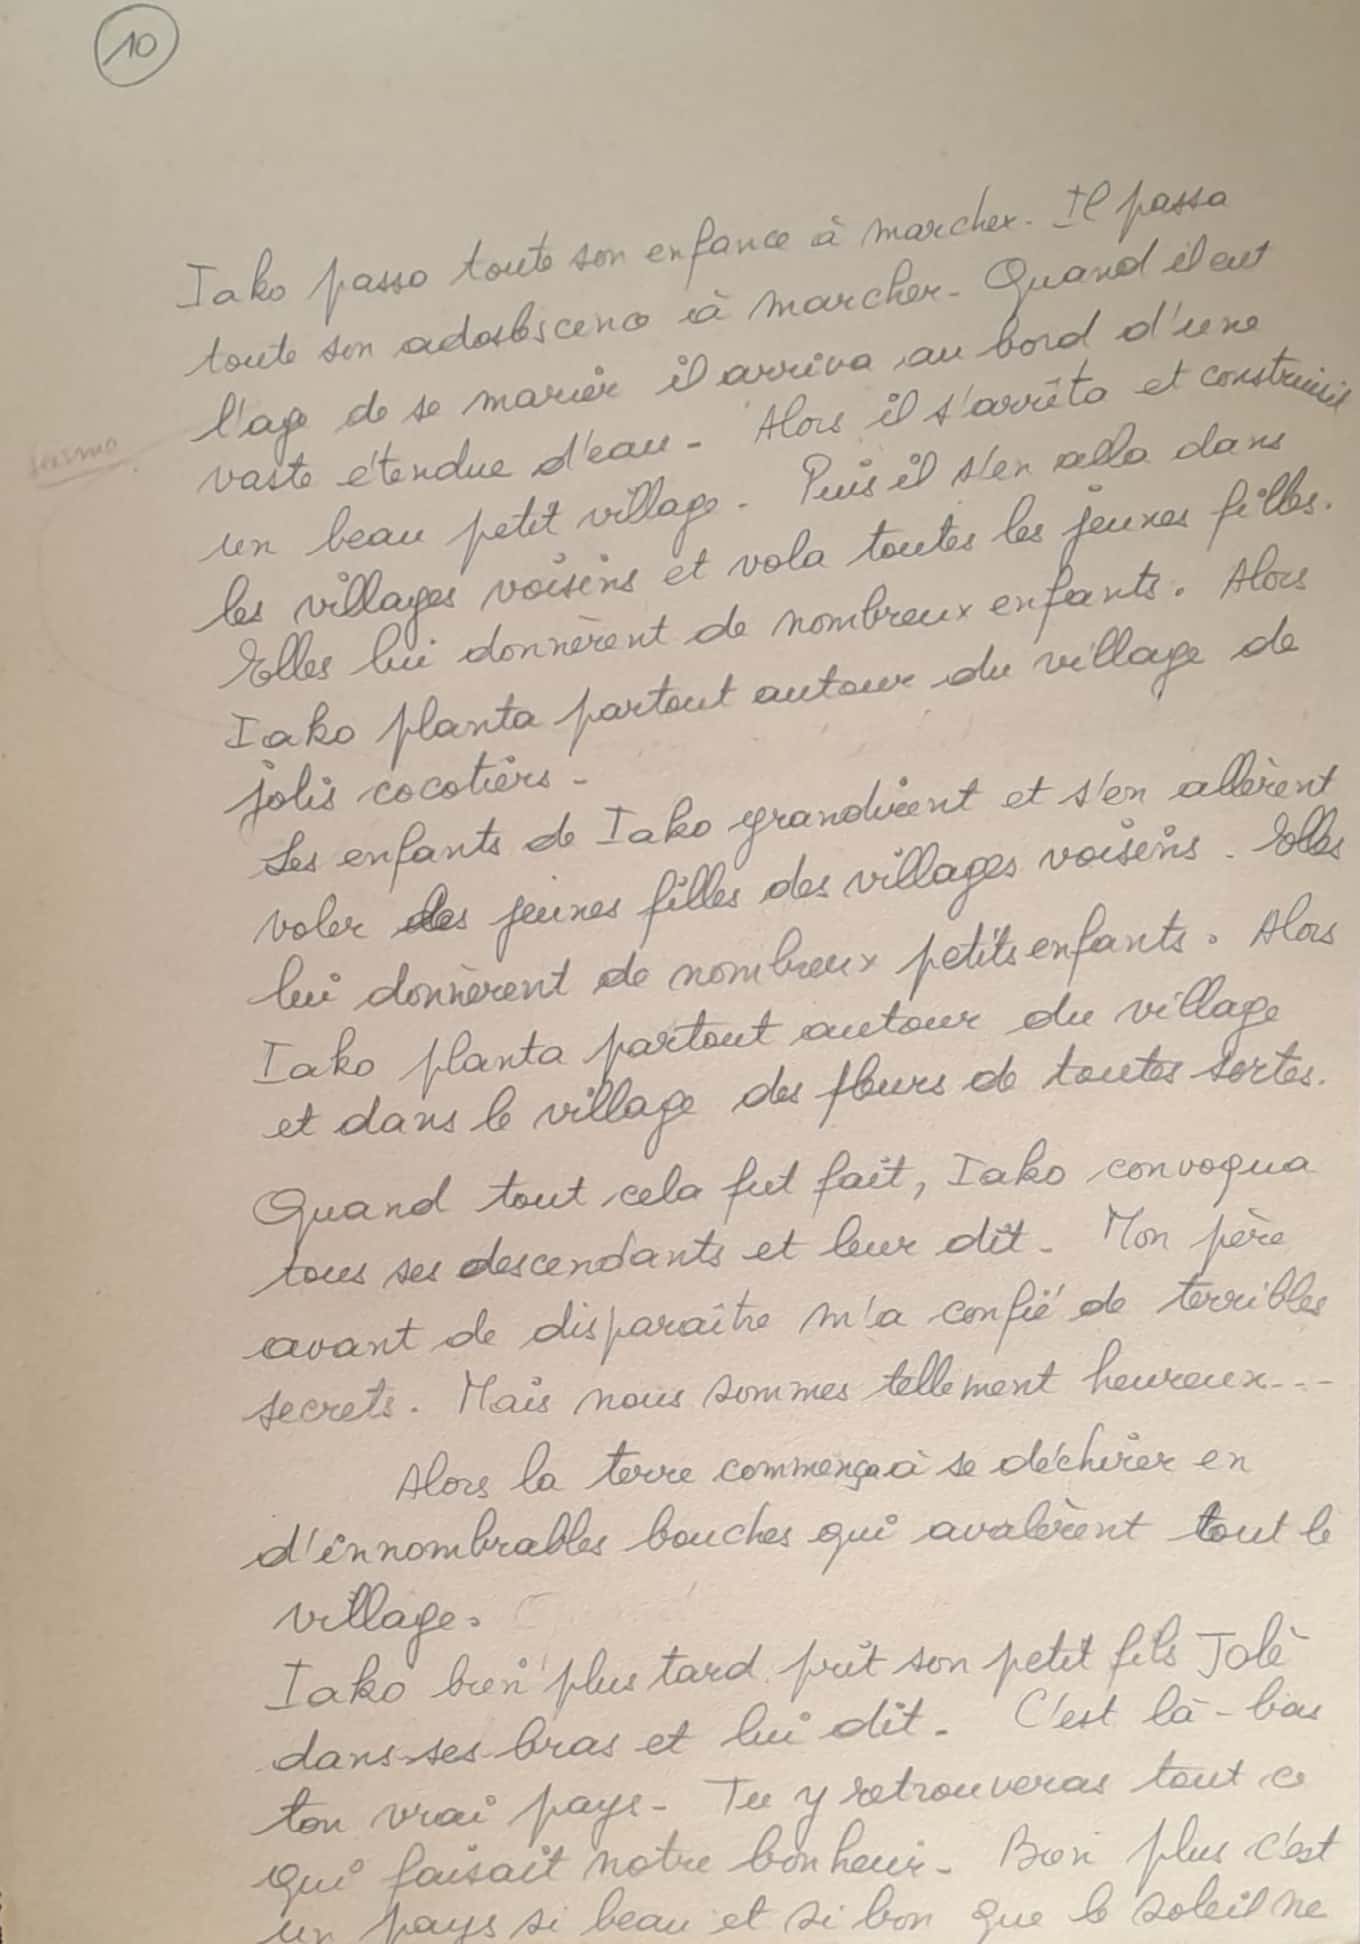 10
Iako passa toute son enfance à marcher. Il passa
toute son adolescence à marcher. Quand il eut
l'age de se marier il arriva au bord d'une
vaste étendue d'eau. Alors il s'arrêta et construisit
un beau petit village. Puis il s'en alla dans
les villages voisins et vola toutes les jeunes filles.
Elles lui donnèrent de nombreux enfants. Alors
Iako planta partout autour du village de
jolis cocotiers.
Les enfants de Iako grandirent et s'en allèrent
voler des jeunes filles des villages voisins. Elles
lui donnèrent de nombreux petits enfants. Alors
Iako planta partout autour du village
et dans le village des fleurs de toutes sortes.
Quand tout cela fut fait, Iako convoqua
tous ses descendants et leur dit. Mon père
avant de disparaître m'a confié de terribles
secrets. Mais nous sommes tellement heureux...
Alors la terre commença à se déchirer en
d'innombrables bouches qui avalèrent tout le
village.
Iako bien plus tard prit son petit fils Jalè
dans ses bras et lui dit. C'est là-bas
ton vrai pays. Tu y retrouveras tout ce
qui faisait notre bonheur. Bien plus c'est
un pays si beau et si bon que le soleil ne